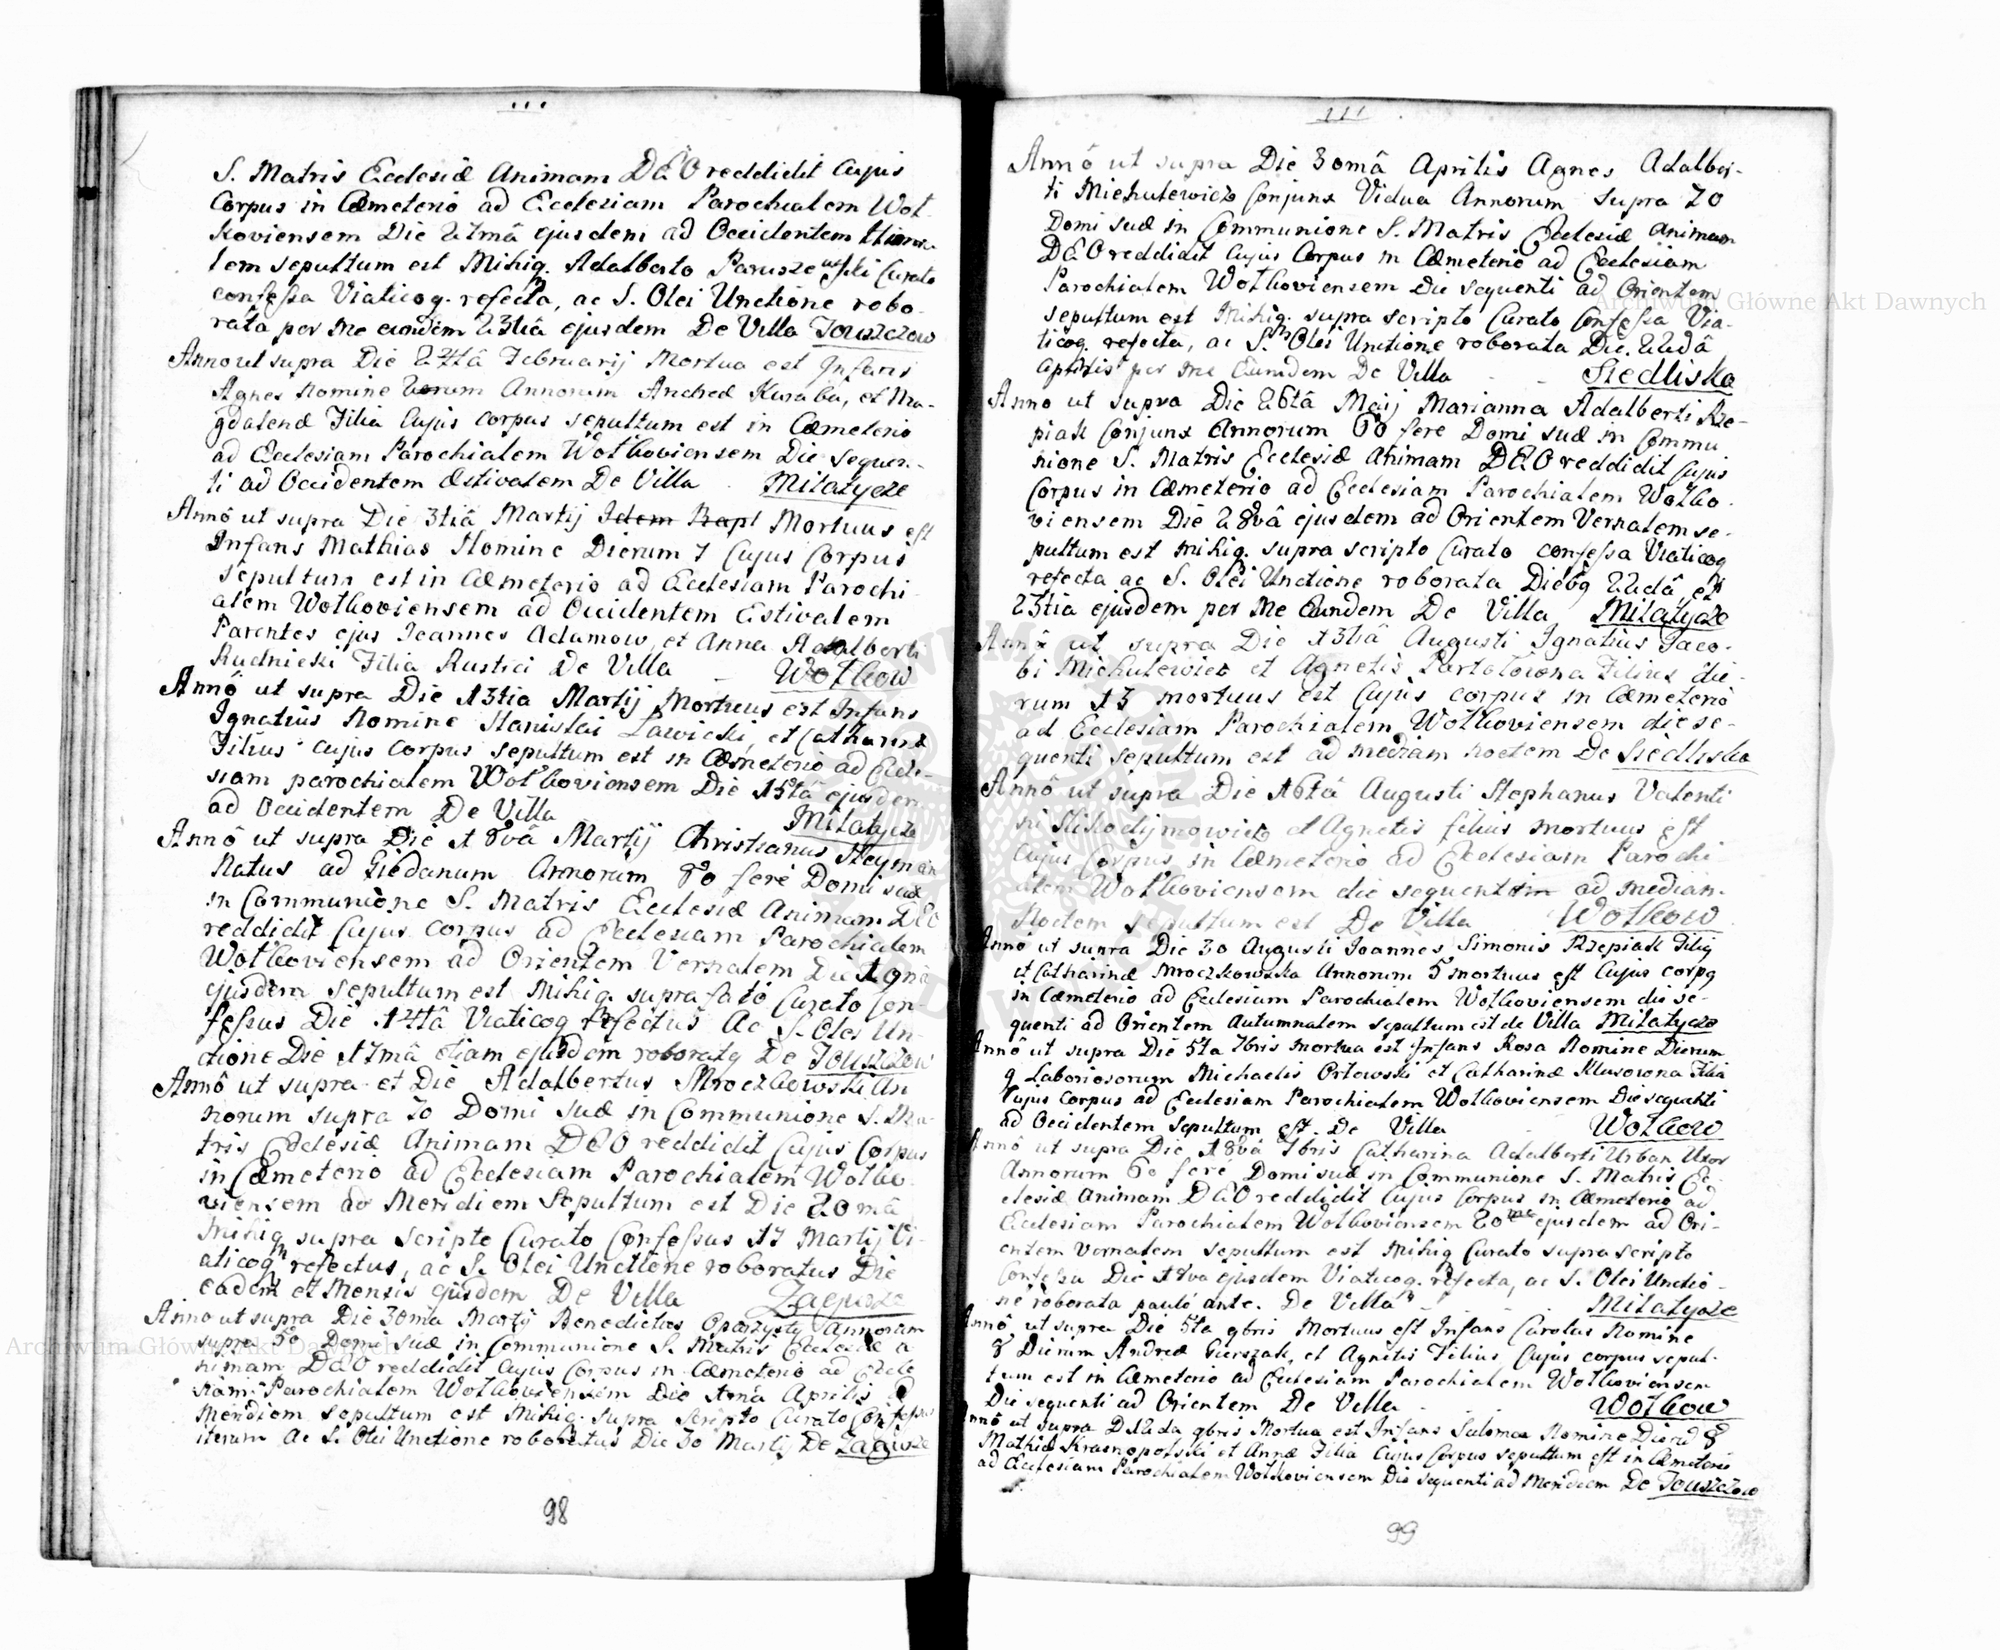 S. Matris Ecclesiæ Animam DEO reddidit Cujus
Corpus in Cæmeterio ad Ecclesiam Parochialem Woł-
koviensem Die 21mâ ejusdem ad Occidentem
lem sepultum est Mihiq. Adalberto Paruszewski Curato
confeſsa Viaticoq. refecta, ac S. Olei Unctione robo-
rata per me eundem 23tiâ ejusdem De Villa Touszczow
Anno ut supra Die 24tâ Februarij Mortua est Infans
Agnes Nomine Annorum Andreæ Kuraba, et Ma-
gdalenæ Filia Cujus corpus sepultum est in Cæmeterio
ad Ecclesiam Parochialem Wołkoviensem Die sequen-
ti ad Occidentem Æstivalem De Villa Milatycze
Annô ut supra Die 3tiâ Martij Mortuus est
Infans Mathias Nomine Dierum 7 Cujus Corpus
Sepultum est in Cæmeterio ad Ecclesiam Parochi-
alem Wołkoviensem ad Occidentem Estivalem
Parentes ejus Joannes Adamow, et Anna Adalberti
Rudnicki Filia Rustici De Villa Wołkow
Annô ut supra Die 13tia Martij Mortuus est Infans
Ignatius Nomine Stanislai Zawicki, et Catharinæ
Filius cujus corpus sepultum est in Cæmeterio ad Eccle-
siam parochialem Wołkoviensem Die 15ta ejusdem
ad Occidentem De Villa Milatycze
Annô ut supra Die 18vâ Martij Christianus Heyman
Natus ad Giedanum Annorum 80 fere Domi suæ
in Communione S. Matris Ecclesiæ Animam DEO
reddidit Cujus corpus ad Ecclesiam Parochialem
Wołkoviensem ad Orientem Vernalem Die 19nâ
ejusdem sepultum est Mihiq. suprafato Curato Con-
feſsus Die 14tâ Viaticoq refectus Ac S. Olei Un-
ctione Die 17mâ etiam ejusdem roboratq De Touszczow
Annô ut supra et Die Adalbertus Mroczkowski An
norum supra 70 Domi suæ in Communione S. Ma-
tris Ecclesiæ Animam DEO reddidit Cujus Corpus
in Cæmeterio ad Ecclesiam Parochialem Wołko-
viensem ad Meridiem Sepultum est Die 20mâ
Mihiq supra scripto Curato Confeſsus 17 Martij Vi-
aticoq refectus, ac S. Olei Unctione roboratus Die
eadem et Mensis ejusdem De Villa Zagurze
Anno ut supra Die 30ma Martij Benedictus Annorum
supra 50 Domi suæ in Communione S. Matris Ecclesiæ a-
nimam DEO reddidit Cujus Corpus in Cæmeterio ad Eccle
siam Parochialem Wołkoviensem Die 1mâ Aprilis ad
Meridiem sepultum est Mihiq. supra scripto Curato Confeſsus
iterum Ac S. Olei Unctione roboratus Die 30 Martij De Zagurze
98
Annô ut supra Die 30mâ Aprilis Agnes Adalber-
ti Michulewicz Conjunx Vidua Annorum supra 70
Domi suæ in Communione S. Matris Ecclesiæ Animam
DEO reddidit Cujus Corpus in Cæmeterio ad Ecclesiam
Parochialem Wołkoviensem Die sequenti ad Orientem
sepultum est Mihiq. supra scripto Curato Confeſsa Via-
ticoq. refecta, ac S. Olei Unctione roborata Die 22dâ
Aprilis per me Eundem De Villa Siedliska
Anno ut supra Die 26tâ Maij Marianna Adalberti Rze-
piak Conjunx Annorum 60 fere Domi suæ in Commu
nione S. Matris Ecclesiæ Animam DEO reddidit Cujus
Corpus in Cæmeterio ad Ecclesiam Parochialem Wołko-
viensem Die 28vâ ejusdem ad Orientem Vernalem se-
pultum est mihiq. supra scripto Curato confeſsa Viaticoq
refecta ac S. Olei Unctione roborata Diebq 22dâ, et
23tia ejusdem per me Eundem De Villa Milatycze
Annô ut supra Die 13tiâ Augusti Ignatius Jaco-
bi Michulewicz et Agnetis Filius die-
rum 13 mortuus est Cujus corpus in Cæmeterio
ad Ecclesiam Parochialem Wołkoviensem die se-
quenti sepultum est ad mediam noctem De Siedliska
Annô ut supra Die 16tâ Augusti Stephanus Valenti
ni Nikodymowicz et Agnetis filius mortuus est
Cujus Corpus in Cæmeterio ad Ecclesiam Parochi
alem Wołkoviensem die sequenti ad median.
Noctem sepultum est De Villa Wołkow
Annô ut supra Die 30 Augusti Joannes, Simonis Rzepiak Filiq
et Catharinæ Mroczkowska Annorum 5 mortuus est Cujus corpq
in Cæmeterio ad Ecclesiam Parochialem Wołkoviensem die se-
quenti ad Orientem Autumnalem sepultum est de Villa Milatycze
Annô ut supra Die 5ta 7bris mortua est Infans Rosa Nomine Dierum
9 Laboriosorum Michaelis Orłowski et Catharinæ Klusowna Filia
Cujus corpus ad Ecclesiam Parochialem Wołkoviensem Die sequenti
ad Occidentem sepultum est. De Villa Wołkow
Annô ut supra Die 18va 7bris Catharina Adalberti Urban Uxor
Annorum 60 fere Domi suæ in Communione S. Matris Ec-
clesiæ Animam DEO reddidit Cujus Corpus in Cæmeterio ad
Ecclesiam Parochialem Wołkoviensem 20ma ejusdem ad Ori-
entem vernalem sepultum est Mihiq Curato supra scripto
Confeſsa Die 18va ejusdem Viaticoq. refecta, ac S. Olei Unctio-
ne roborata pauló ante. De Villa Milatycze
Annô ut supra Die 5ta 9bris Mortuus est Infans Carolus Nomine
8 Dierum Andreæ Gierszak, et Agnetis Filius, Cujus corpus sepul-
tum est in Cæmeterio ad Ecclesiam Parochialem Wołkoviensem
Die sequenti ad Orientem De Villa Wołkow
Annô ut supra D 22da 9bris Mortua est Infans Salomea Nomine 8
Mathiæ Krasnopolski et Annæ Filia Cujus Corpus sepultum est in Cæmeterio
ad Ecclesiam Parochialem Wołkoviensem Die sequenti ad Meridiem De Touszczow
99
Archiwum Główne Akt Dawnych
Archiwum Główne Akt Dawnych